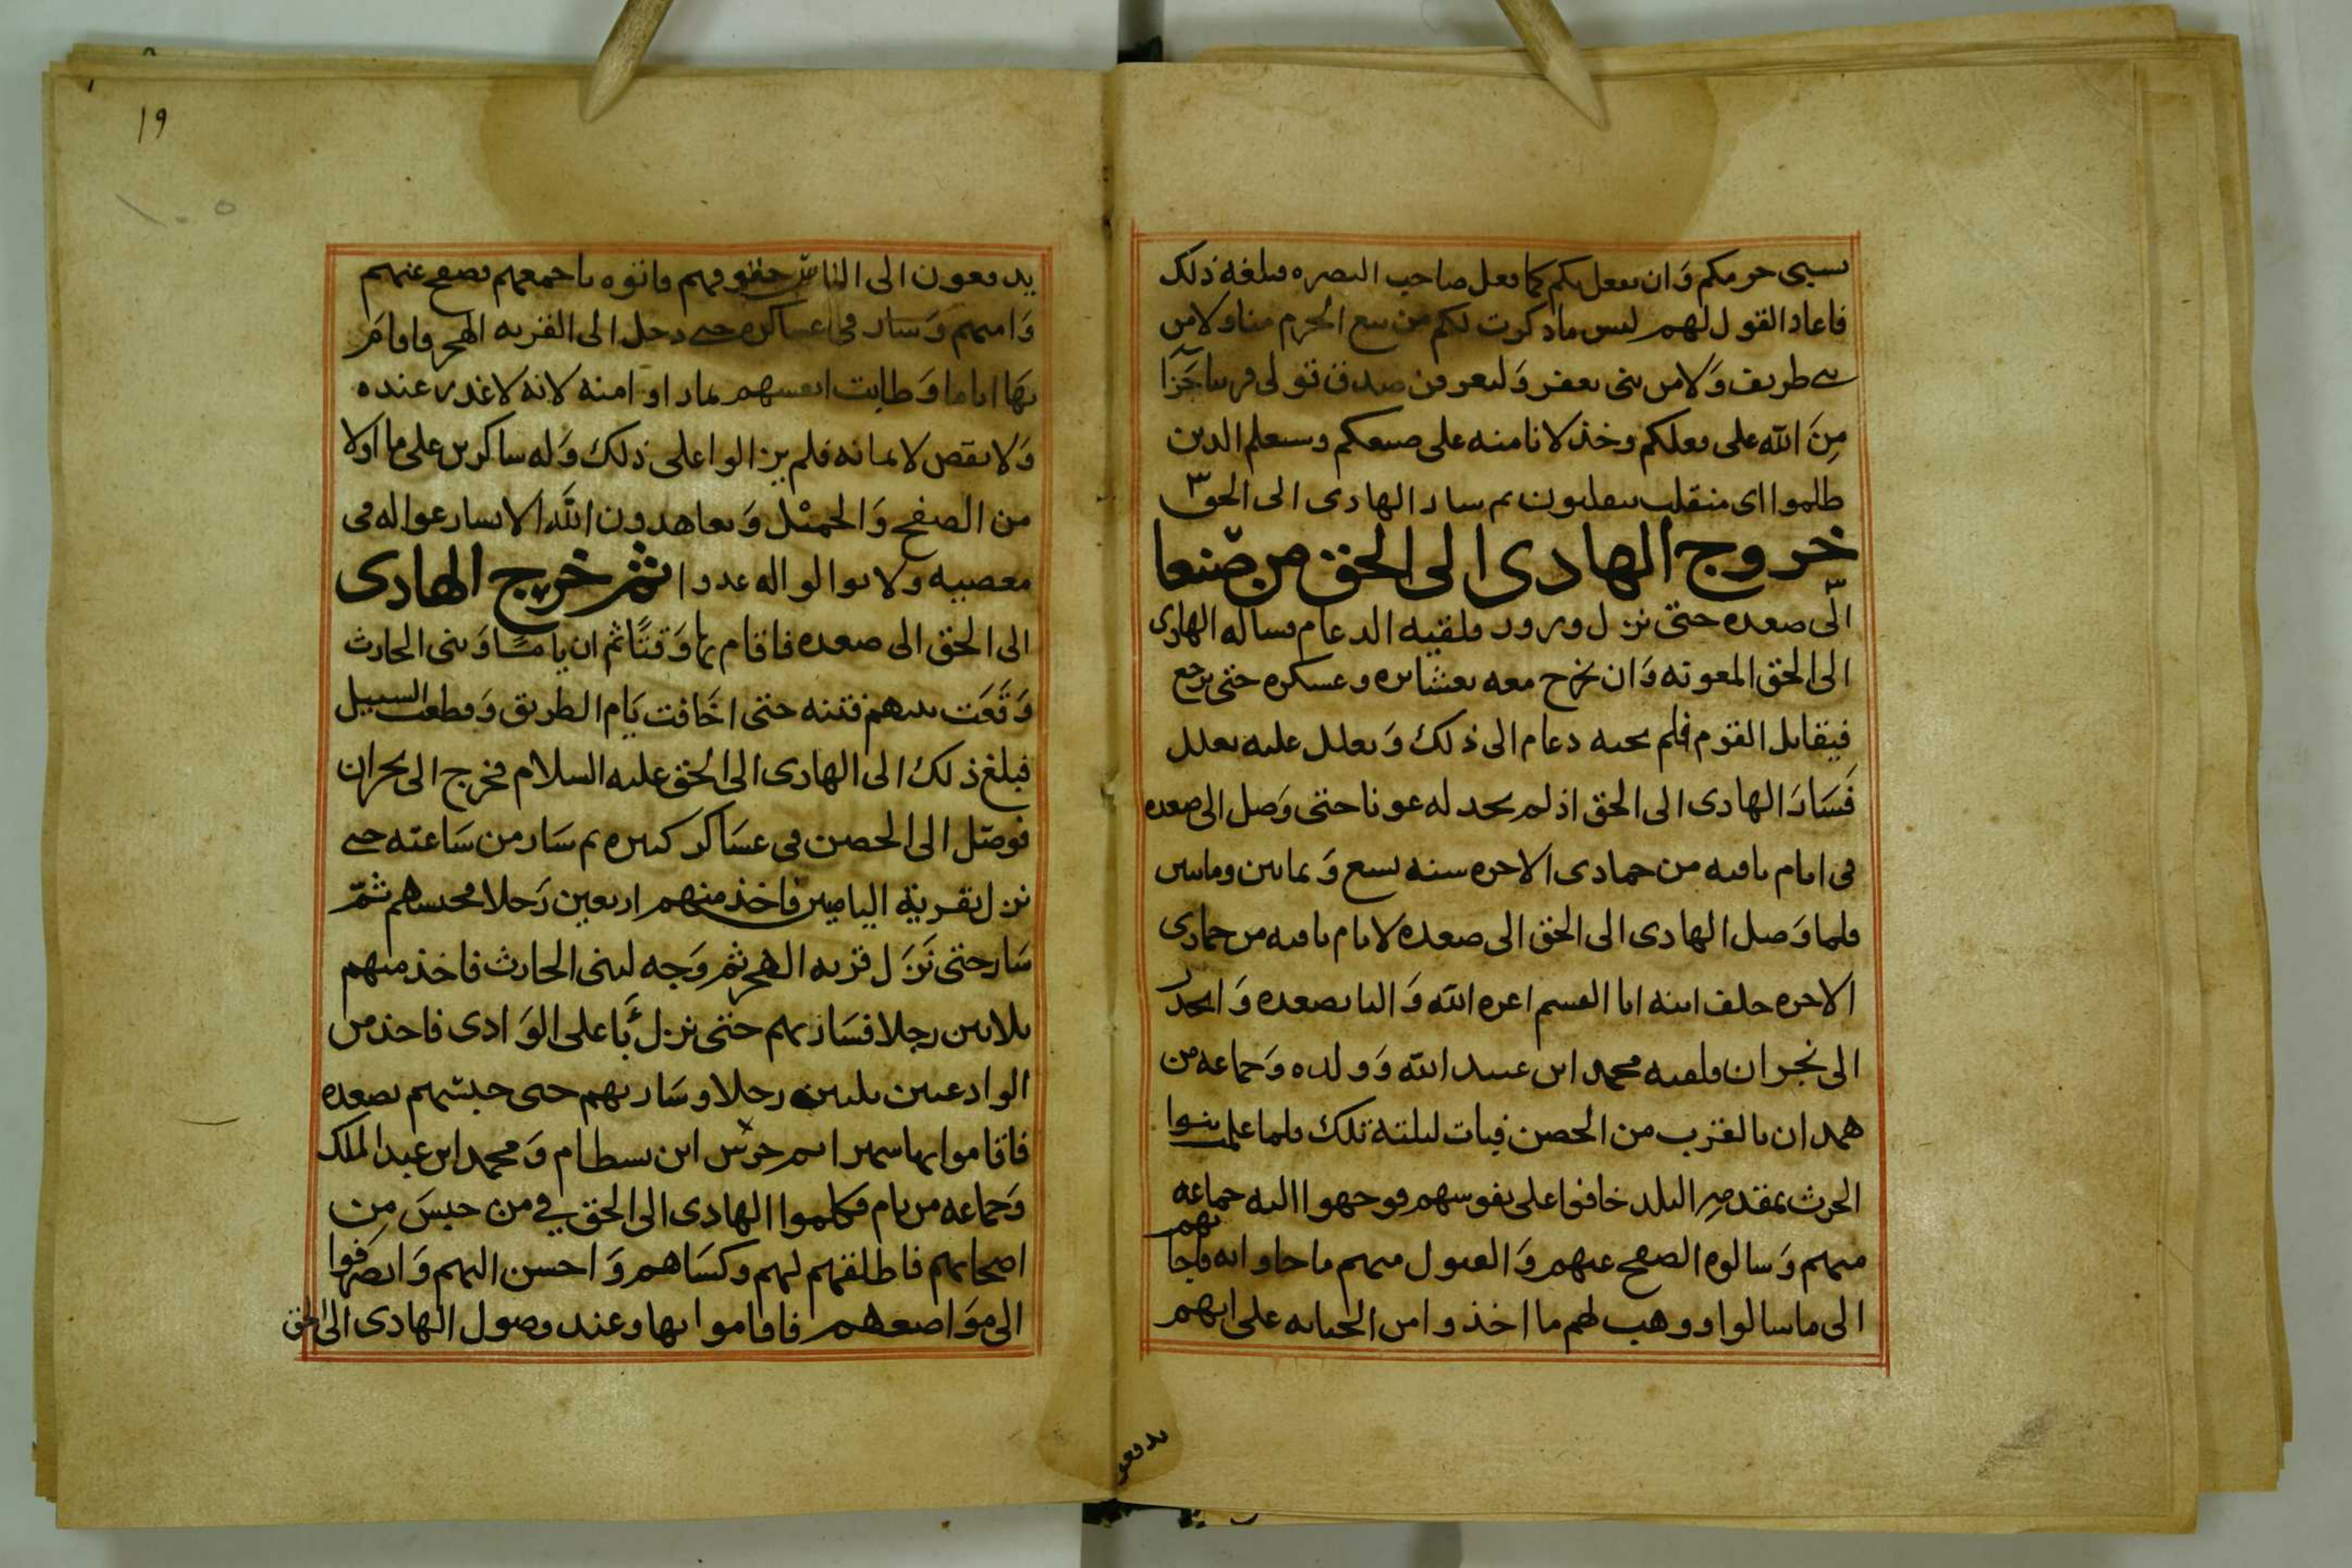 يسبى حرمكم وَان يفعل بكم كما فعل صاحب البصره فبلغه ذلك
فاعاد القول لهم ليس ماذكرت لكم من بيع الحرم منا ولا من
بنى طريف وَلا من بنى يعفر وَليعرفن صدق قولى فرساجَزآ
مِنَ الله على فعلكم وخذلانا منه على صنيعكم وسيعلم الذين
ظلموا اى منقلب ينقلبون ثم سار الهادى الى الحق
خروج الهادى الى الحق من صنعا
الى صعده حتى نزل ورور فلقيه الدعام فساله الهادى
الى الحق المعونه وَان يخرج معه بعشائره وعسكره حتى يرجع
فيقاتل القوم فلم يجبه دعام الى ذلك وَتعلل عليه بعلل
فَسَارَ الهادى الى الحق اذ لم يجد له عونا حتى وَصل الى صعده
فى ايام باقيه من جمادى الاخره سنه تسع وَثمانين ومايتين
فلما وَصل الهادى الى الحق الى صعده لايام باقيه من جمادى
الاخره خلف ابنه ابا القسم اعزه الله وَاليا بصعده وَانحدر
الى نجران فلقيه محمد ابن عبيد الله وَولده وَجماعه من
همدان بالقرب من الحصن فبات ليلته تلك فلما علمت بنوا
الحرث بمقدمهِ البلد خافوا على نفوسهم فوجهوا اليه جماعه
منهم وَسالوه الصفح عنهم وَالقبول منهم ما جاوا به فاجابهم
الى ما سالوا ووهب لهم ما اخذ وامن الجبابه على انهم
يدفعو
١٩
١٠٥
يدفعون الى الناس حقوقهم فاتوه باجمعهم فصفح عنهم
وَامنهم وَسار فى عساكره حتى دخل الى القريه الهجر فاقامَ
بهَا اياما وَطابت انفسهم بما راو امنه لانه لا غدر عنده
وَلا نقص لايمانه فلم يزالوا على ذلك وَله شاكرين على ما اولا
من الصفح وَالجميْل وَيعاهدون اللهَ الا يسارعوا له فى
معصيه ولا يوالوا له عدوا ثم خرج الهادى
الى الحق الى صعده فاقام بها وَقتًا ثم ان يامًا وَبنى الحارث
وَقَعَت بينهم فتنه حتى اخَافت يَام الطريق وَقطعت السبيل
فبلغ ذلك الى الهادى الى الحق عليه السلام فخرج الى نجران
فوصَل الى الحصن فى عسَاكر كثيره ثم سَار من سَاعته حتى
نزل بقرية اليامين فاخذ منهم اربعين رَجلا فحبسهم ثمّ
سَار حتى نَزَل قريه الهجر ثم وَجه لبنى الحارث فاخذ منهم
ثلاثين رجلا فسَار بهم حتى نزل بَاعلى الوَادى فاخذ من
الوادعيين ثلثين رجلا وسَار بهم حتى حبسهم بصعده
فاقاموا بها شهر اثم خرَش ابن بسطام وَمحمد ابن عبد الملك
وَجماعه من يام فكلموا الهادى الى الحق في من حبسَ مِن
اصحابهم فاطلقهم لهم وكسَاهم وَاحسن اليهم وَانصرَفوا
الى موَاضعهم فاقاموا بها وعند وصول الهادى الى الحق